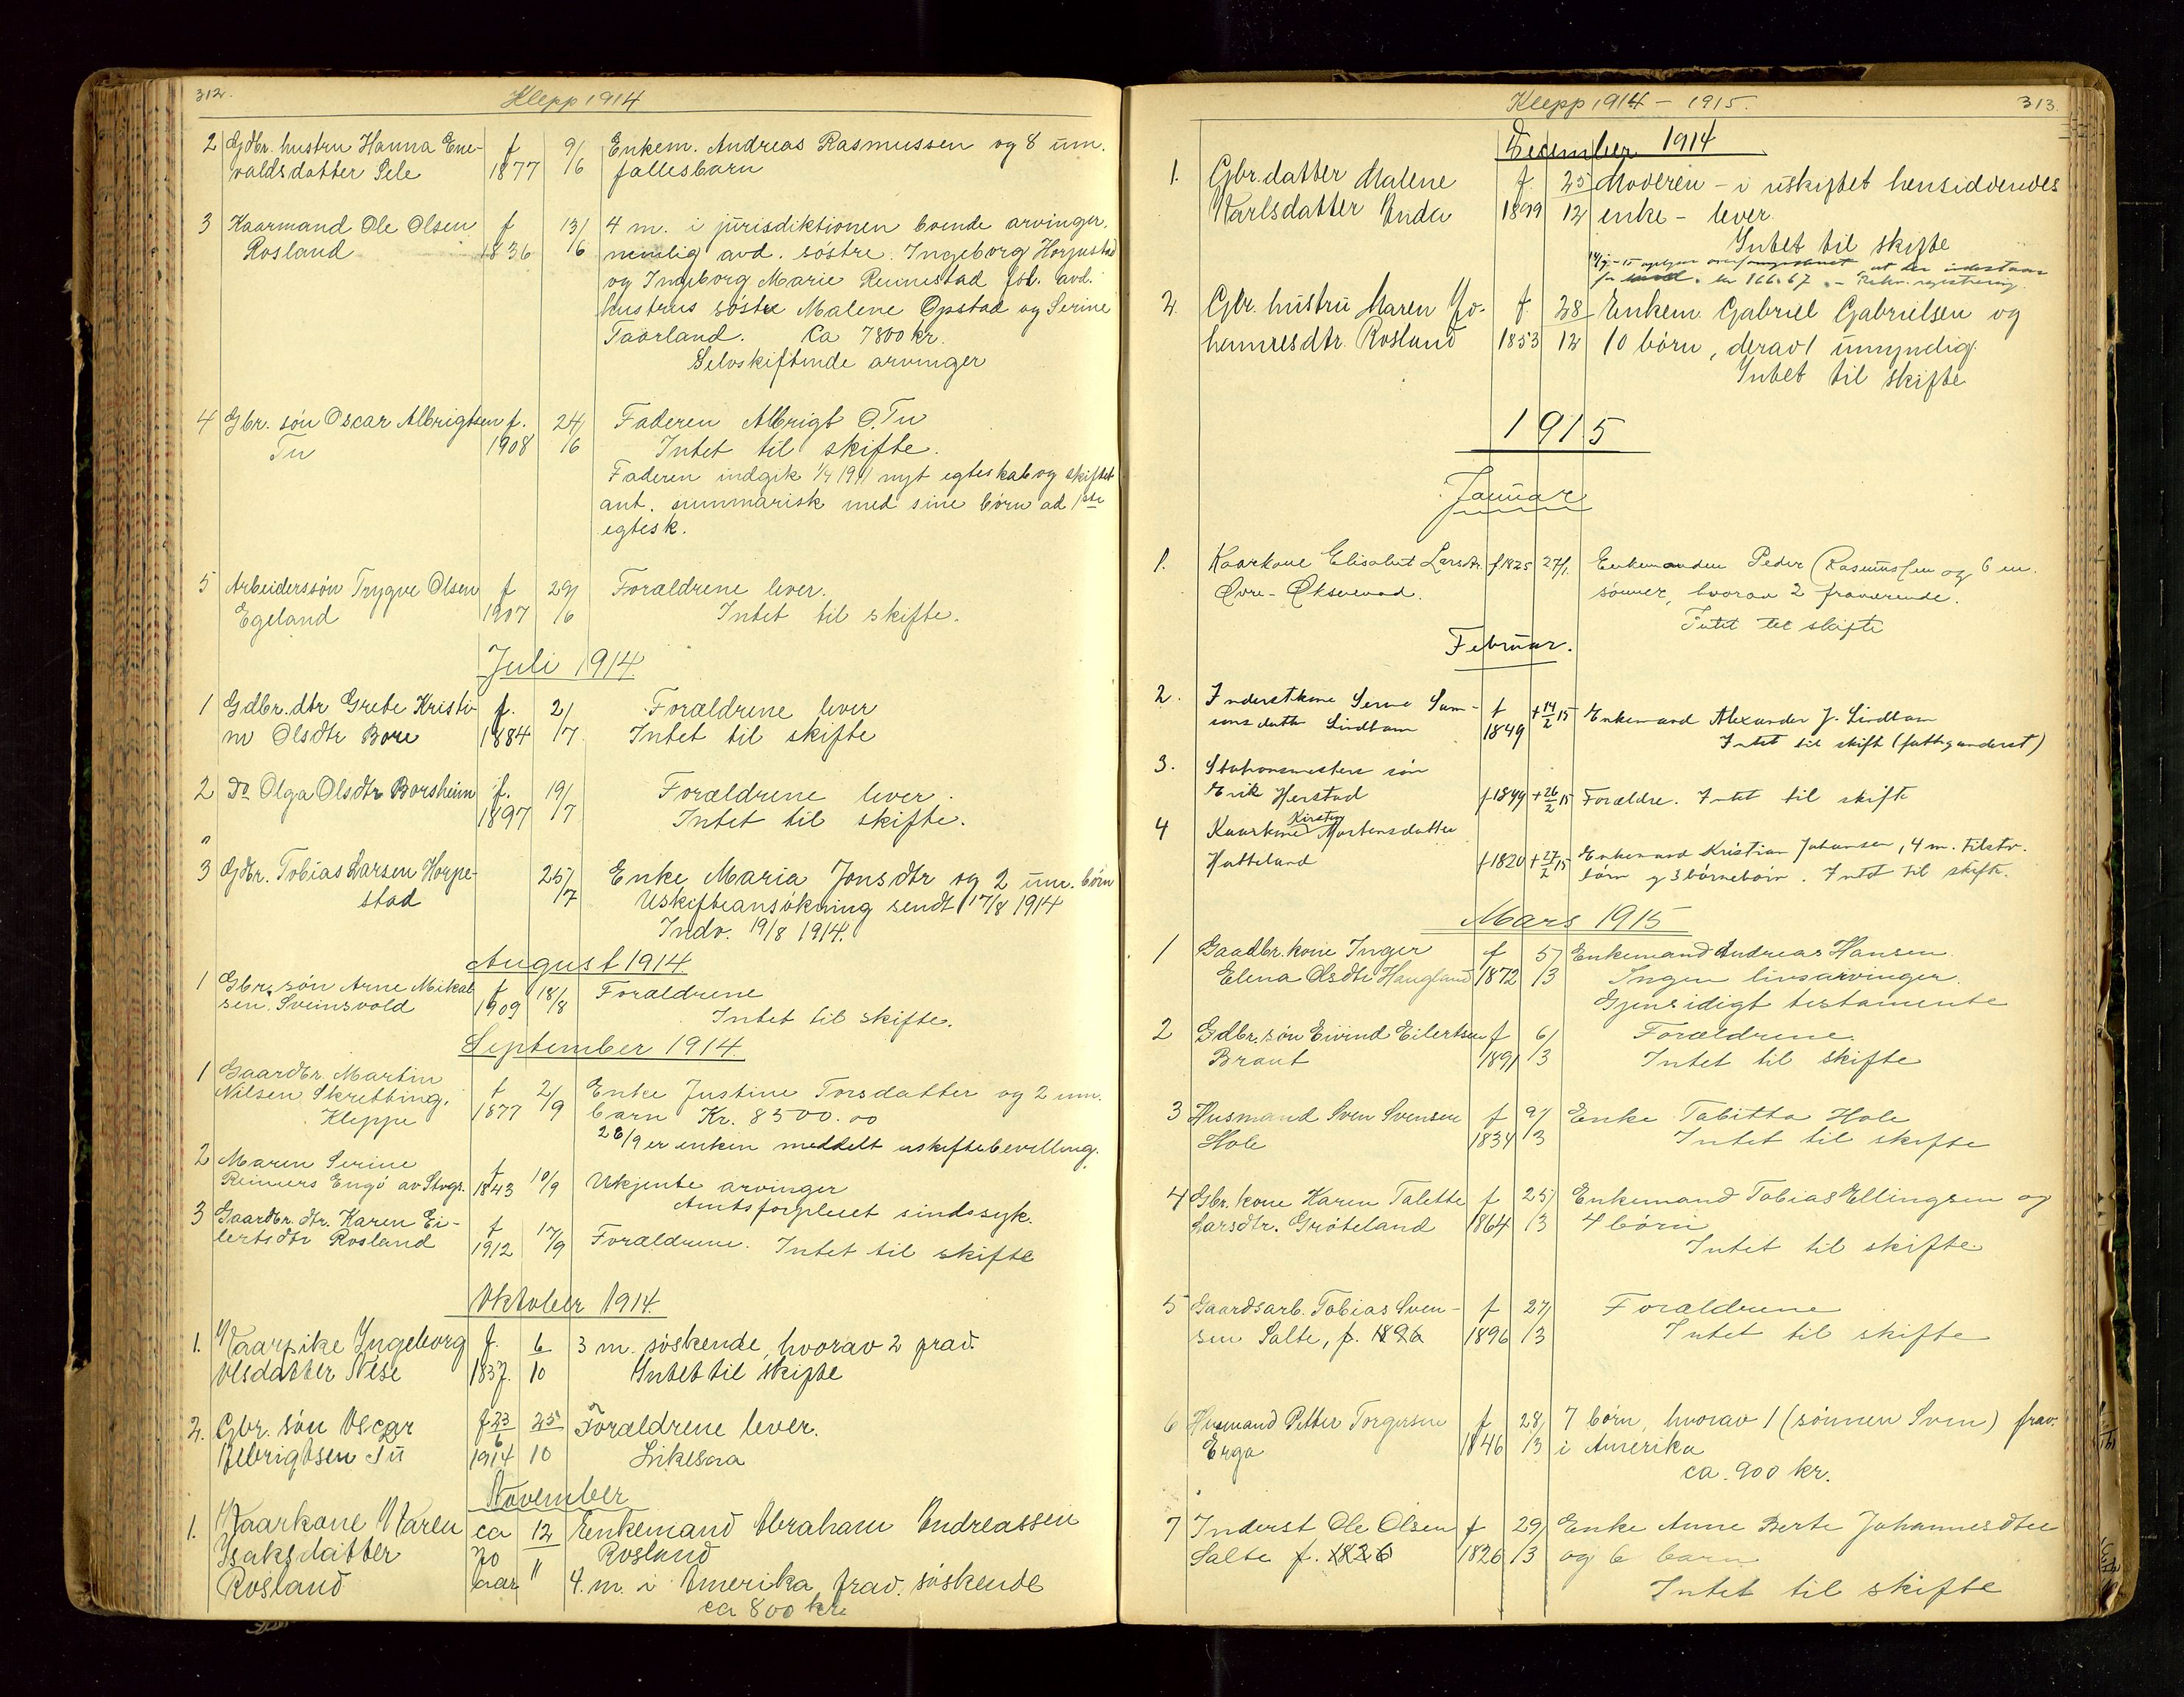 312.
Klepp 1914
2 Gdbr. hustru Hanna Ene- f 9/ Enkem. Andreas Rasmussen og 8 um.
valdsdatter Pele 1877 /6 fællesbarn
3 Kaarmand Ole Olsen f 13/ 4 m. i jurisdiktionen boende arvinger,
Rosland 1836 /6 nemlig avd. søstre. Ingeborg Horpestad
og Ingeborg Marie Rennestad før. avd.
hustrus søstre Malene Opstad og Serine
Taarland. Ca 7800 kr.
Selvskiftende arvinger
4 Gbr. søn Oscar Albrigtsen f. 24/ Faderen Albrigt O. Tu
Tu 1908 /6 Intet til skifte.
Faderen indgik 1/4 1911 nyt egteskab og skiftet
ant. summarisk med sine børn ad 1ste
egtesk.
5 Arbeiderssøn Trygve Olsen f 29/ Forældrene lever.
Egeland 1907 /6 Intet til skifte.
Juli 1914.
1 Gdbr. dtr Grete Kristi- f. 2/ Forældrene lever
ne Olsdtr Bore 1884 /7 Intet til skifte
2 Do Olga Olsdtr Borsheim f. 19/ Forældrene lever.
1897 /7 Intet til skifte.
3 Gdbr. Tobias Larsen Horpe- 25/ Enke Maria Jonsdtr og 2 um. børn
stad /7 Uskifteansøkning sendt 17/8 1914
Indv. 19/8 1914.
August 1914
1 Gbr. søn Arne Mikal f 18/ Forældrene
sen Sveinsvold 1909 /8 Intet til skifte.
September 1914.
1 Gaardbr. Martin
Nilsen Skretting, f 2/ Enke Justine Torsdatter og 2 um.
Kleppe 1877 /9 barn Kr. 8500.00
26/9 er enken meddelt uskiftebevilling.
2 Maren Serine f
Reimers Engø av Stvgr. 1843 10/9 Ukjente arvinger
Amtsforpleiet sindssyk.
3 Gaardbr. dtr. Karen Ei- f 17/
lertsdtr Rosland 1912 /9 Forældrene. Intet til skifte
Oktober 1914.
1. Kaarpike Ingeborg f. 6 3 m. søskende, hvorav 2 frav.
Olsdatter Nese 1837. 10 Intet til skifte
2. Gbr. søn Oscar f 23/6 25 Forældrene lever.
Albrigtsen Tu 1914 10 Likesaa
November
1. Kaarkone Karen ca 12 Enkemand Abraham Andreassen
Isaksdatter 70 11 Rosland
Rosland aar 4. m. i Amerika frav. søskende
ca 800 kr.
Klepp 1914 - 1915.
313.
December 1914
1. Gbr. datter Malene f. 25 Moderen - i uskiftet hensiddendes
Karlsdatter Enda 1899 12 enke - lever.
Intet til skifte
2. Gbr. hustru Maren Jo- f. 28 Enkem. Gabriel Gabrielsen og
hannesdtr. Rosland 1853 12 10 børn, derav 1 umyndig.
Intet til skifte
1915
Januar
1. Kaarkone Elisabet Larsdtr. f 1825 27/1. Enkemanden Peder Rasmussen og 6 m.
Øvre-Øksnevad. sønner, hvorav 2 fraværende.
Intet til skifte
Februar.
2. Inderstkone Serine Sam- f + 14/2 15 Enkemand Alexander J. Lindtam
sonsdatter Lindtam 1849 Intet til skifte (fattigunderst)
3. Stationsmesters søn
Erik Herstad f 1899 + 26/2 15 Forældre. Intet til skifte
4 Kaarkone Kirsten Mortensdatter
Hatteland f 1820 + 27/2 15 Enkemand Kristian Johansen, 4 m. tilstv.
børn og 3 børnebørn. Intet til skifte.
Mars 1915
1 Gaardbr. kone Inger f 5/ Enkemand Andreas Hansen.
Elena Olsdtr Haugland 1872 /3 Ingen livsarvinger.
Gjensidigt testamente
2 Gdbr. søn Eivind Eilertsen f 6/ Forældrene.
Braut 1891 /3 Intet til skifte
3 Husmand Sven Svensen f 9/ Enke Tabitta Hole
Hole 1834 /3 Intet til skifte
4 Gbr. kone Karen Talette f 25/ Enkemand Tobias Ellingsen og
Larsdtr. Grøteland 1864 /3 4 børn
Intet til skifte.
5 Gaardsarb. Tobias Sven- f 27/ Forældrene
sen Salte, f. 1896 1896 /3 Intet til skifte
6 Husmand Petter Torgersen f 28/ 7 børn, hvorav 1 (sønnen Sven) frav.
Erga 1846 /3 i Amerika
ca. 900 kr.
7 Inderst Ole Olsen f 29/ Enke Anne Berte Johannesdtr
Salte f. 1826 1826 /3 og 6 barn
Intet til skifte